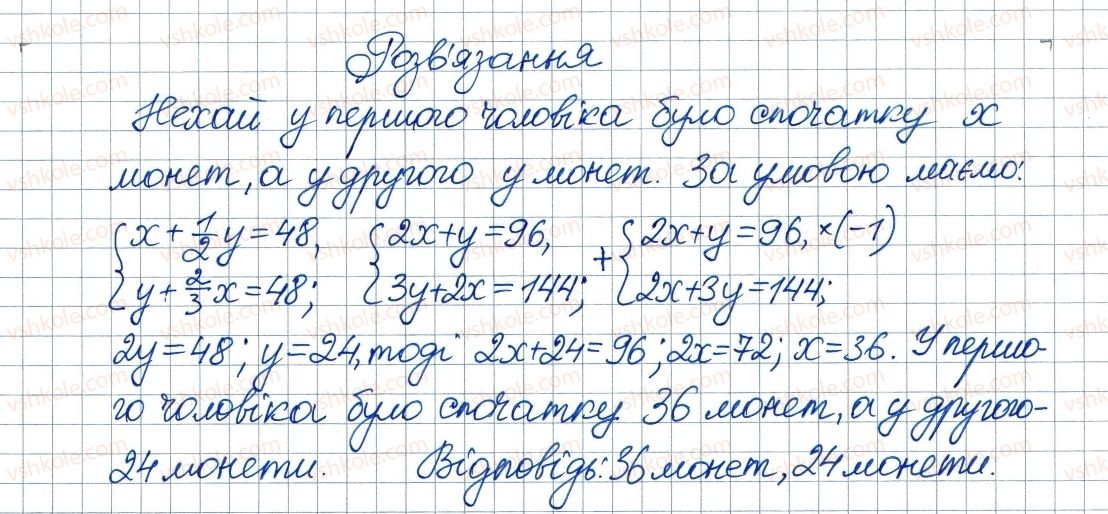 Розв'язання
Нехай у першого чоловіка було спочатку x
монет, а у другого y монет. За умовою маємо:
{x + 1/2 y = 48, {2x + y = 96, + {2x + y = 96, ×(-1)
{y + 2/3 x = 48; {3y + 2x = 144; {2x + 3y = 144;
2y = 48; y = 24, тоді 2x + 24 = 96; 2x = 72; x = 36. У першо-
го чоловіка було спочатку 36 монет, а у другого-
24 монети. Відповідь: 36 монет, 24 монети.